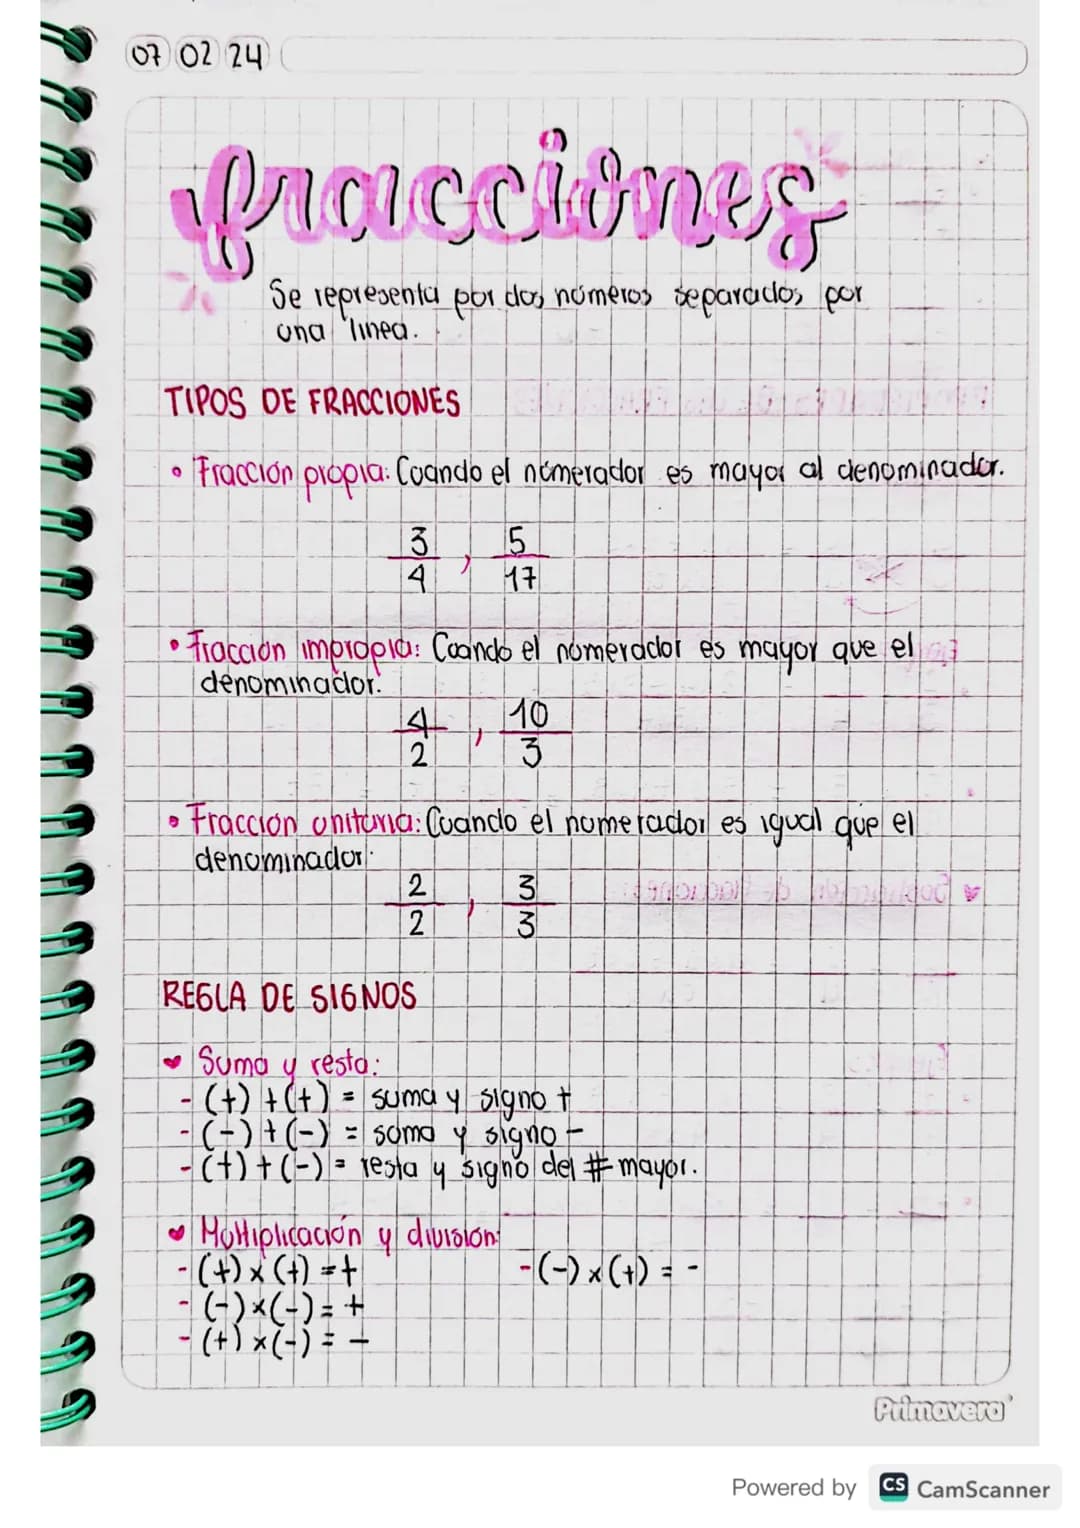 07 02 24
fracciones
Se representa por dos números separados por
una linea.
TIPOS DE FRACCIONES
• Fracción propia: Cuando el númerador es mayor al denominador.
3/4 , 5/17
• Fracción impropia: Cuando el numerador es mayor que el
denominador.
4/2 , 10/3
• Fracción unitaria: Cuando el numerador es igual que el
denominador.
2/2 , 3/3
REGLA DE SIGNOS
♥ Suma y resta:
- (+) + (+) = suma y signo +
- (-) + (-) = soma y signo -
- (+) + (-) = resta y signo del # mayor.
♥ Multiplicación y división:
- (+) x (+) = + - (-) x (+) = -
- (-) x (-) = +
- (+) x (-) = -
Primavera
Powered by CS CamScanner